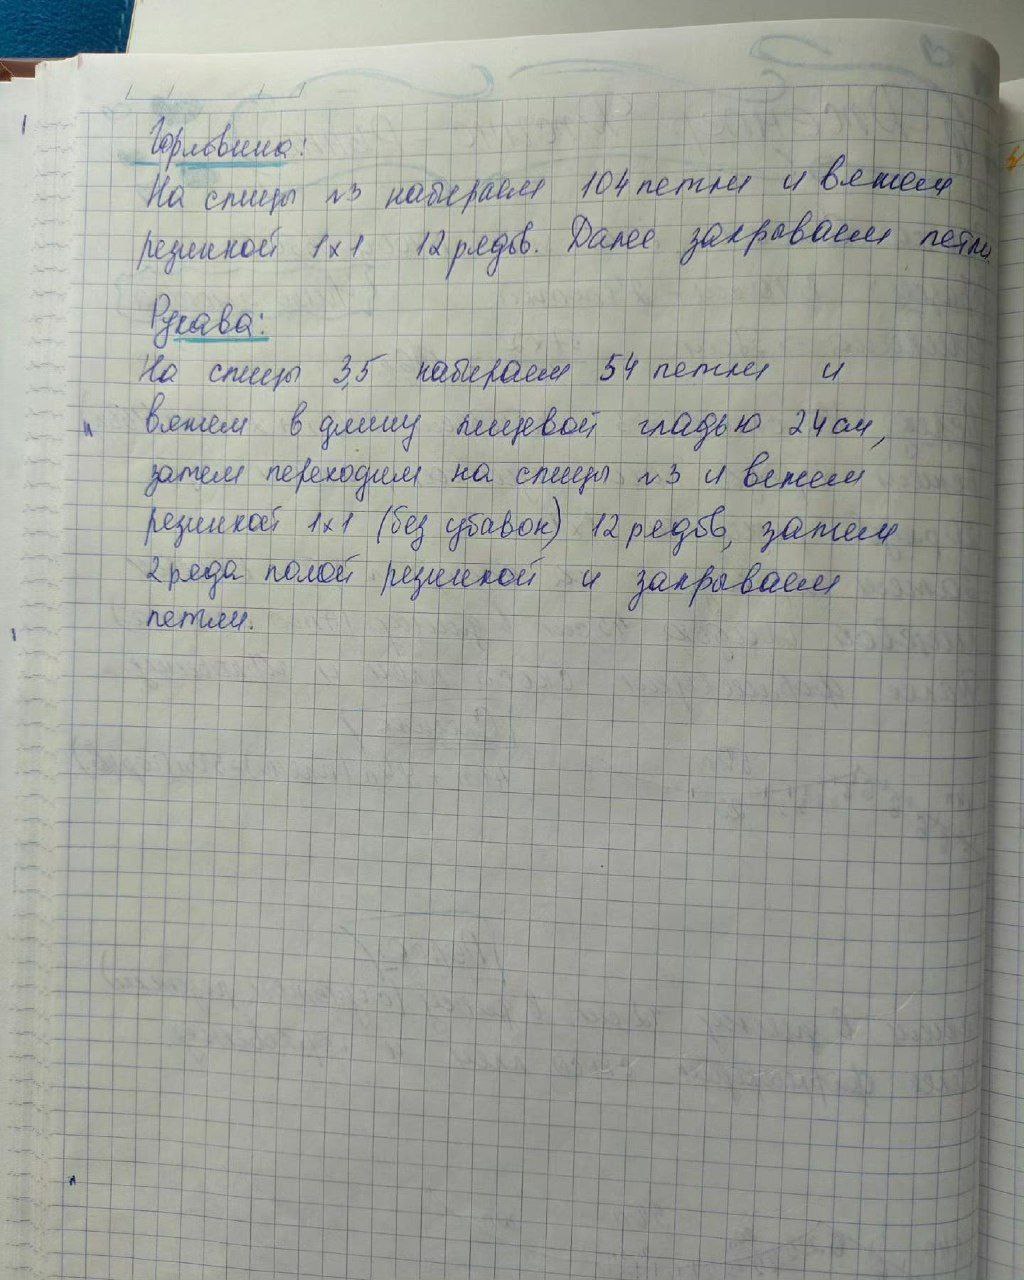 Горловина:
На спицы №3 набираем 104 петли и вяжем
резинкой 1x1 12 рядов. Далее закрываем петли.
Рукава:
На спицы 3,5 набираем 54 петли и
вяжем в длину лицевой гладью 24 см,
затем переходим на спицы №3 и вяжем
резинкой 1x1 (без убавок) 12 рядов, затем
2 ряда полой резинкой и закрываем
петли.